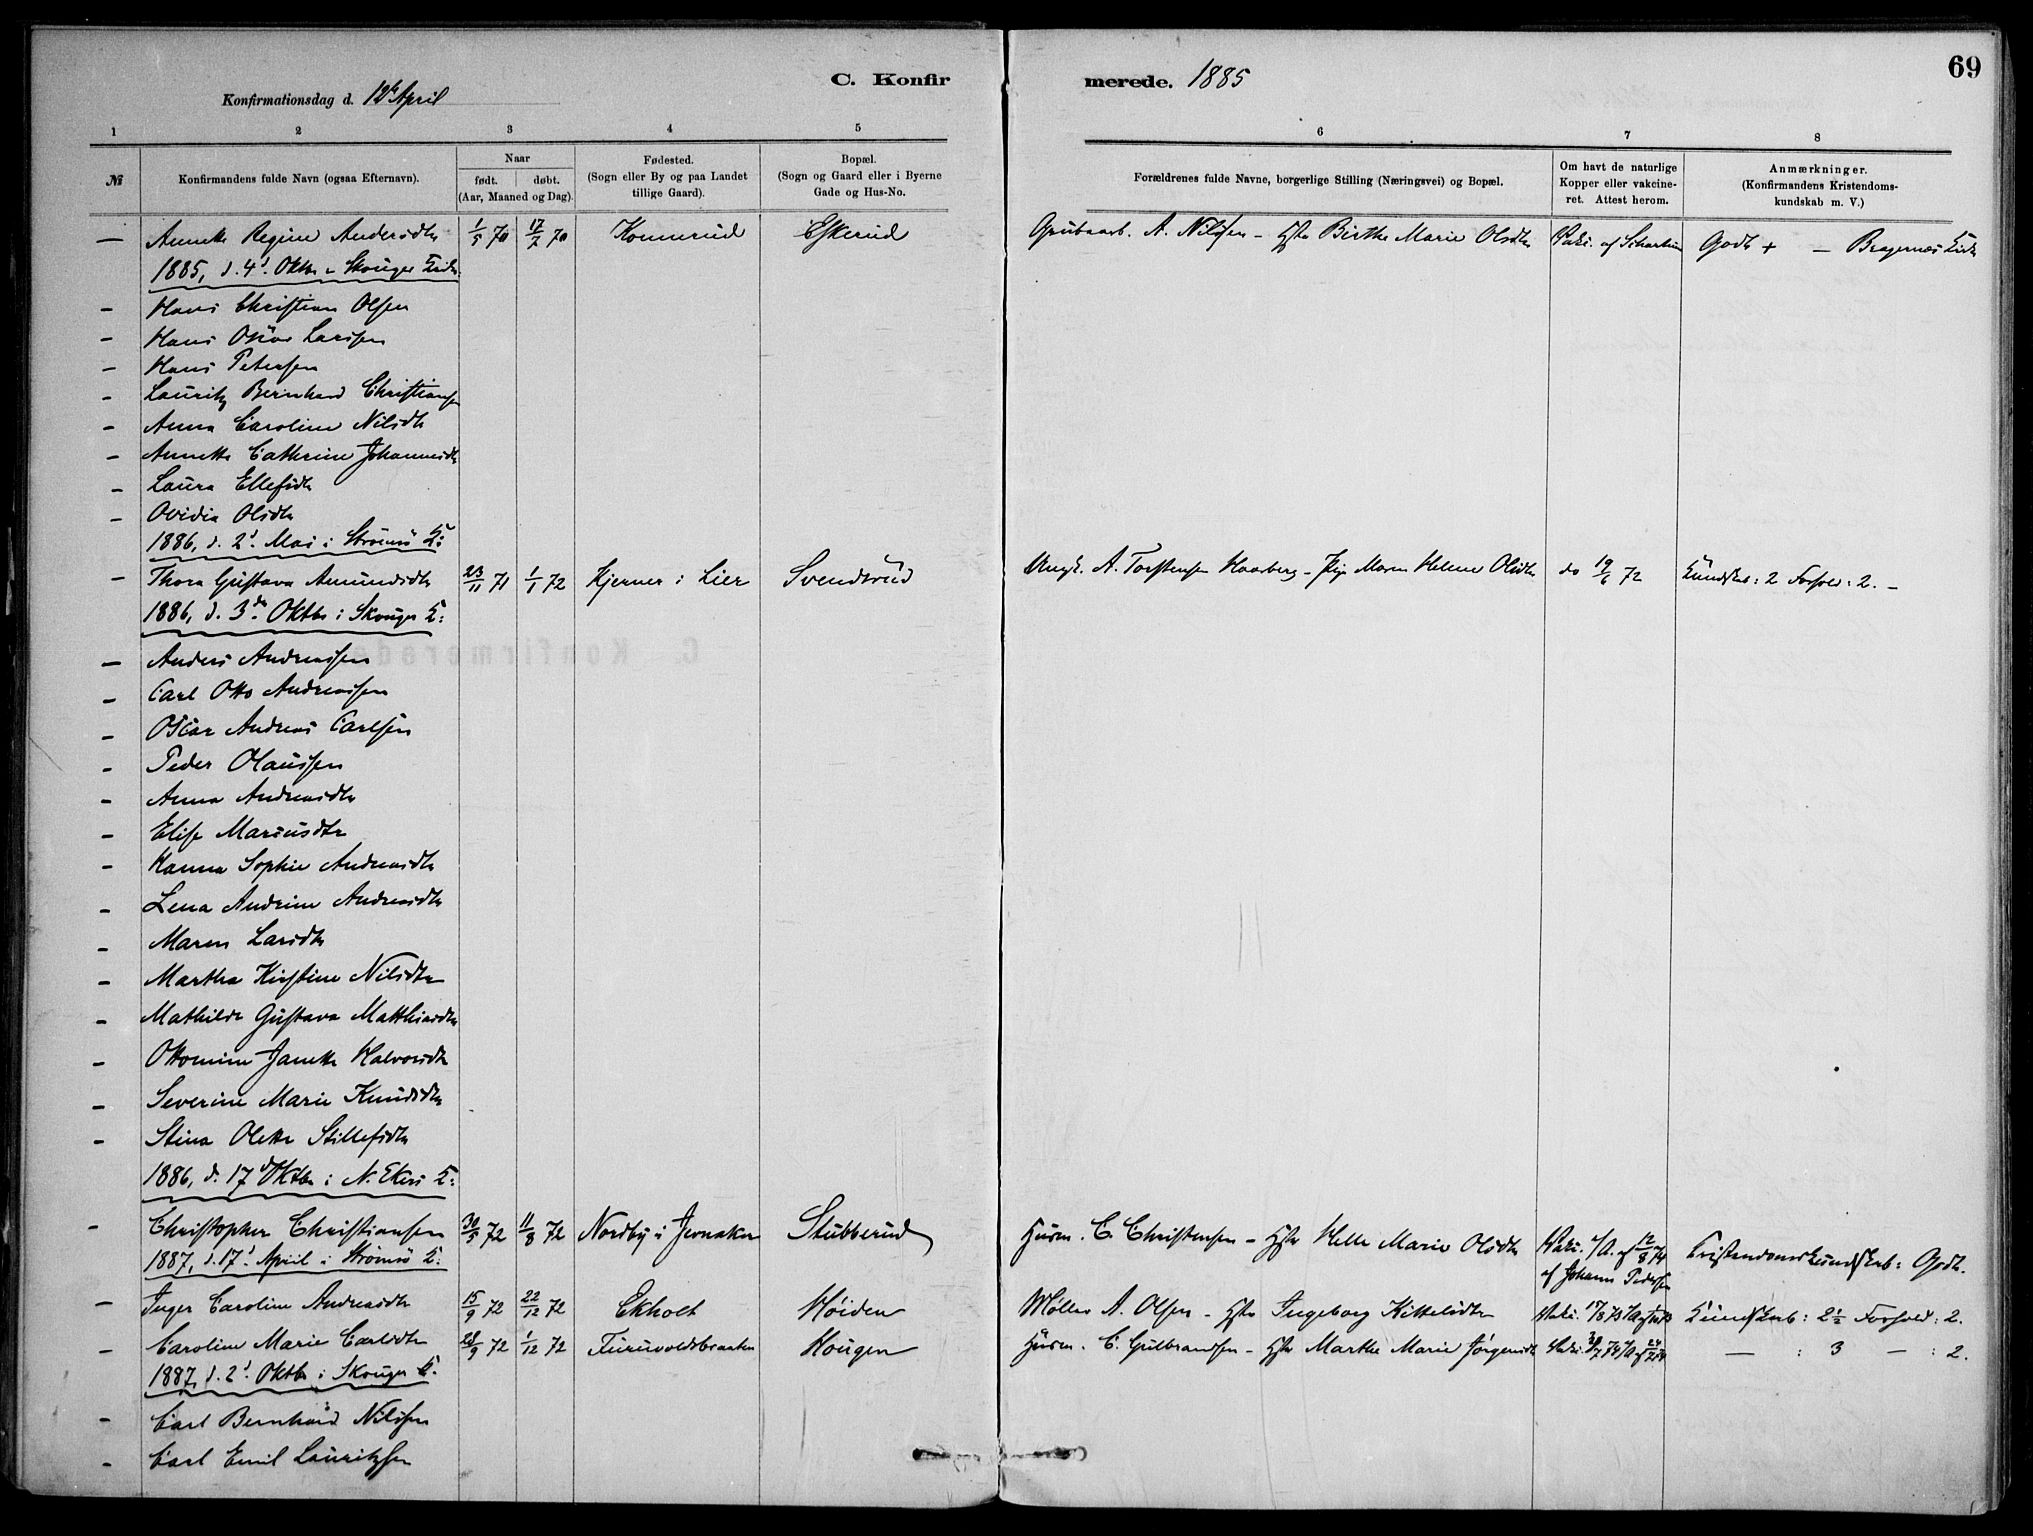 C. Konfirmerede. 1885 69
Konfirmationsdag d. 12te April
1 2 3 4 5 6 7 8
№ Konfirmandens fulde Navn (ogsaa Efternavn). Naar født. døbt. (Aar, Maaned og Dag). Fødested. (Sogn eller By og paa Landet tillige Gaard). Bopæl. (Sogn og Gaard eller i Byerne Gade og Hus-No. Forældrenes fulde Navne, borgerlige Stilling (Næringsvei) og Bopæl. Om havt de naturlige Kopper eller vakcineret. Attest herom. Anmærkninger. (Konfirmandens Kristendomskundskab m. V.)
— Annette Regine Andersdtr 1/5 70 17/7 70 Konnerud Eskerud Grubearb. A. Nilsen – Hstr Birthe Marie Olsdtr Vakc. af Scharbin Godt + — Bragernæs Kirke
1885, d. 4d Oktbr i Skouger Kirke:
– Hans Christian Olsen
– Hans Oskar Larssen
– Hans Petersen
– Lauritz Bernhard Christiansen
– Anna Caroline Nilsdtr
– Annette Cathrine Johannesdtr
– Laura Ellefsdtr
– Ovidia Olsdtr
1886, d. 2d Mai i Strømsø K:
– Thora Gustava Amundsdtr 23/11 71 1/1 72 Kjerner i Lier Svendsrud Ungk. A. Torstensen Haarberg – Pige Maren Helene Olsdtr do 19/6 72 Kundskab: 2 Forhold: 2. –
1886, d. 3de Oktbr i Skouger K:
— Anders Andreassen
– Carl Otto Andreassen
– Oscar Andreas Carlsen
– Peder Olaussen
– Anna Andreasdtr
– Elise Mariusdtr
– Hanna Sophie Andreasdtr
– Lena Andrine Andreasdtr
– Maren Larsdtr
– Martha Kirstine Nilsdtr
– Mathilde Gustava Matthiasdtr
– Ottomine Janette Halvorsdtr
– Severine Marie Knudsdtr
– Stina Olette Stillefsdtr
1886, d. 17d Oktbr i N. Ekers K:
– Christopher Christiansen 30/5 72 11/8 72 Nordby i Jevnaker Stubberud Husm. C. Christensen – Hstr Helle Marie Olsdtr Vakc. 1/A. af 12/8 74 af Johann Pedersen Kristendomskundskab: Godt.
1887, d. 17d April i Strømsø K:
– Inger Caroline Andreasdtr 15/9 72 22/12 72 Ekholt Høiden Møller A. Olsen – Hstr Ingeborg Kittelsdtr Kundskab: 2½ Forhold: 2.
– Caroline Marie Carlsdtr 28/9 72 1/12 72 Furuvoldsbraaten Hougen Husm. C. Gulbrandsen – Hstr Marthe Marie Jørgensdtr — : 3 — : 2.
1887, d. 2d Oktbr i Skouger K:
– Carl Bernhard Nilssen
– Carl Emil Lauritzsen